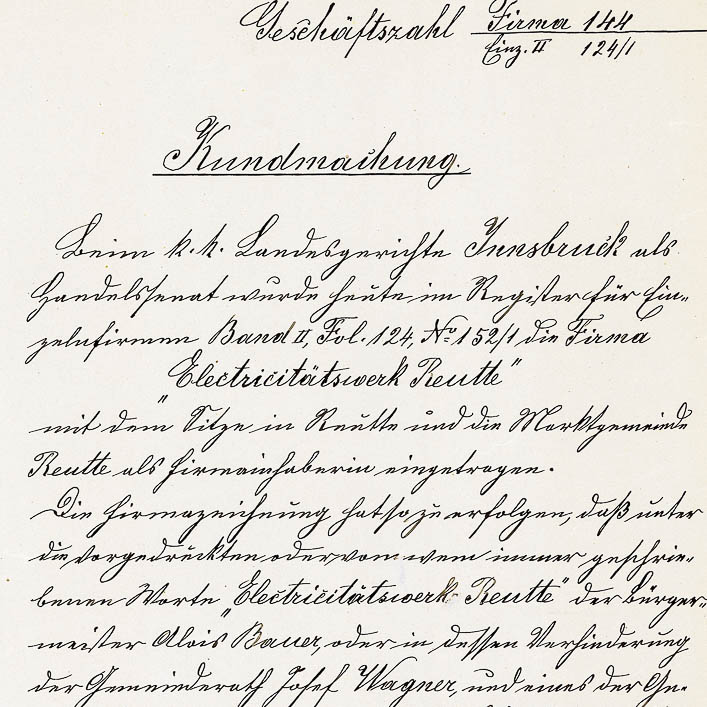 Geschäftszahl Firma 144
Einz. II 124/1
Kundmachung.
Beim k. k. Landesgerichte Innsbruck als
Handelssenat wurde heute im Register für Ein-
zelnfirmen Band II, Fol. 124, No 152/1 die Firma
„Electricitätswerk Reutte"
mit dem Sitze in Reutte und die Marktgemeinde
Reutte als Firmainhaberin eingetragen.
Die Firmazeichnung hat so zu erfolgen, daß unter
die vorgedruckten oder von wem immer geschrie-
benen Worte „Electricitätswerk Reutte" der Bürger-
meister Alois Bauer, oder in dessen Verhinderung
der Gemeinderath Josef Wagner, und eines der Ge-